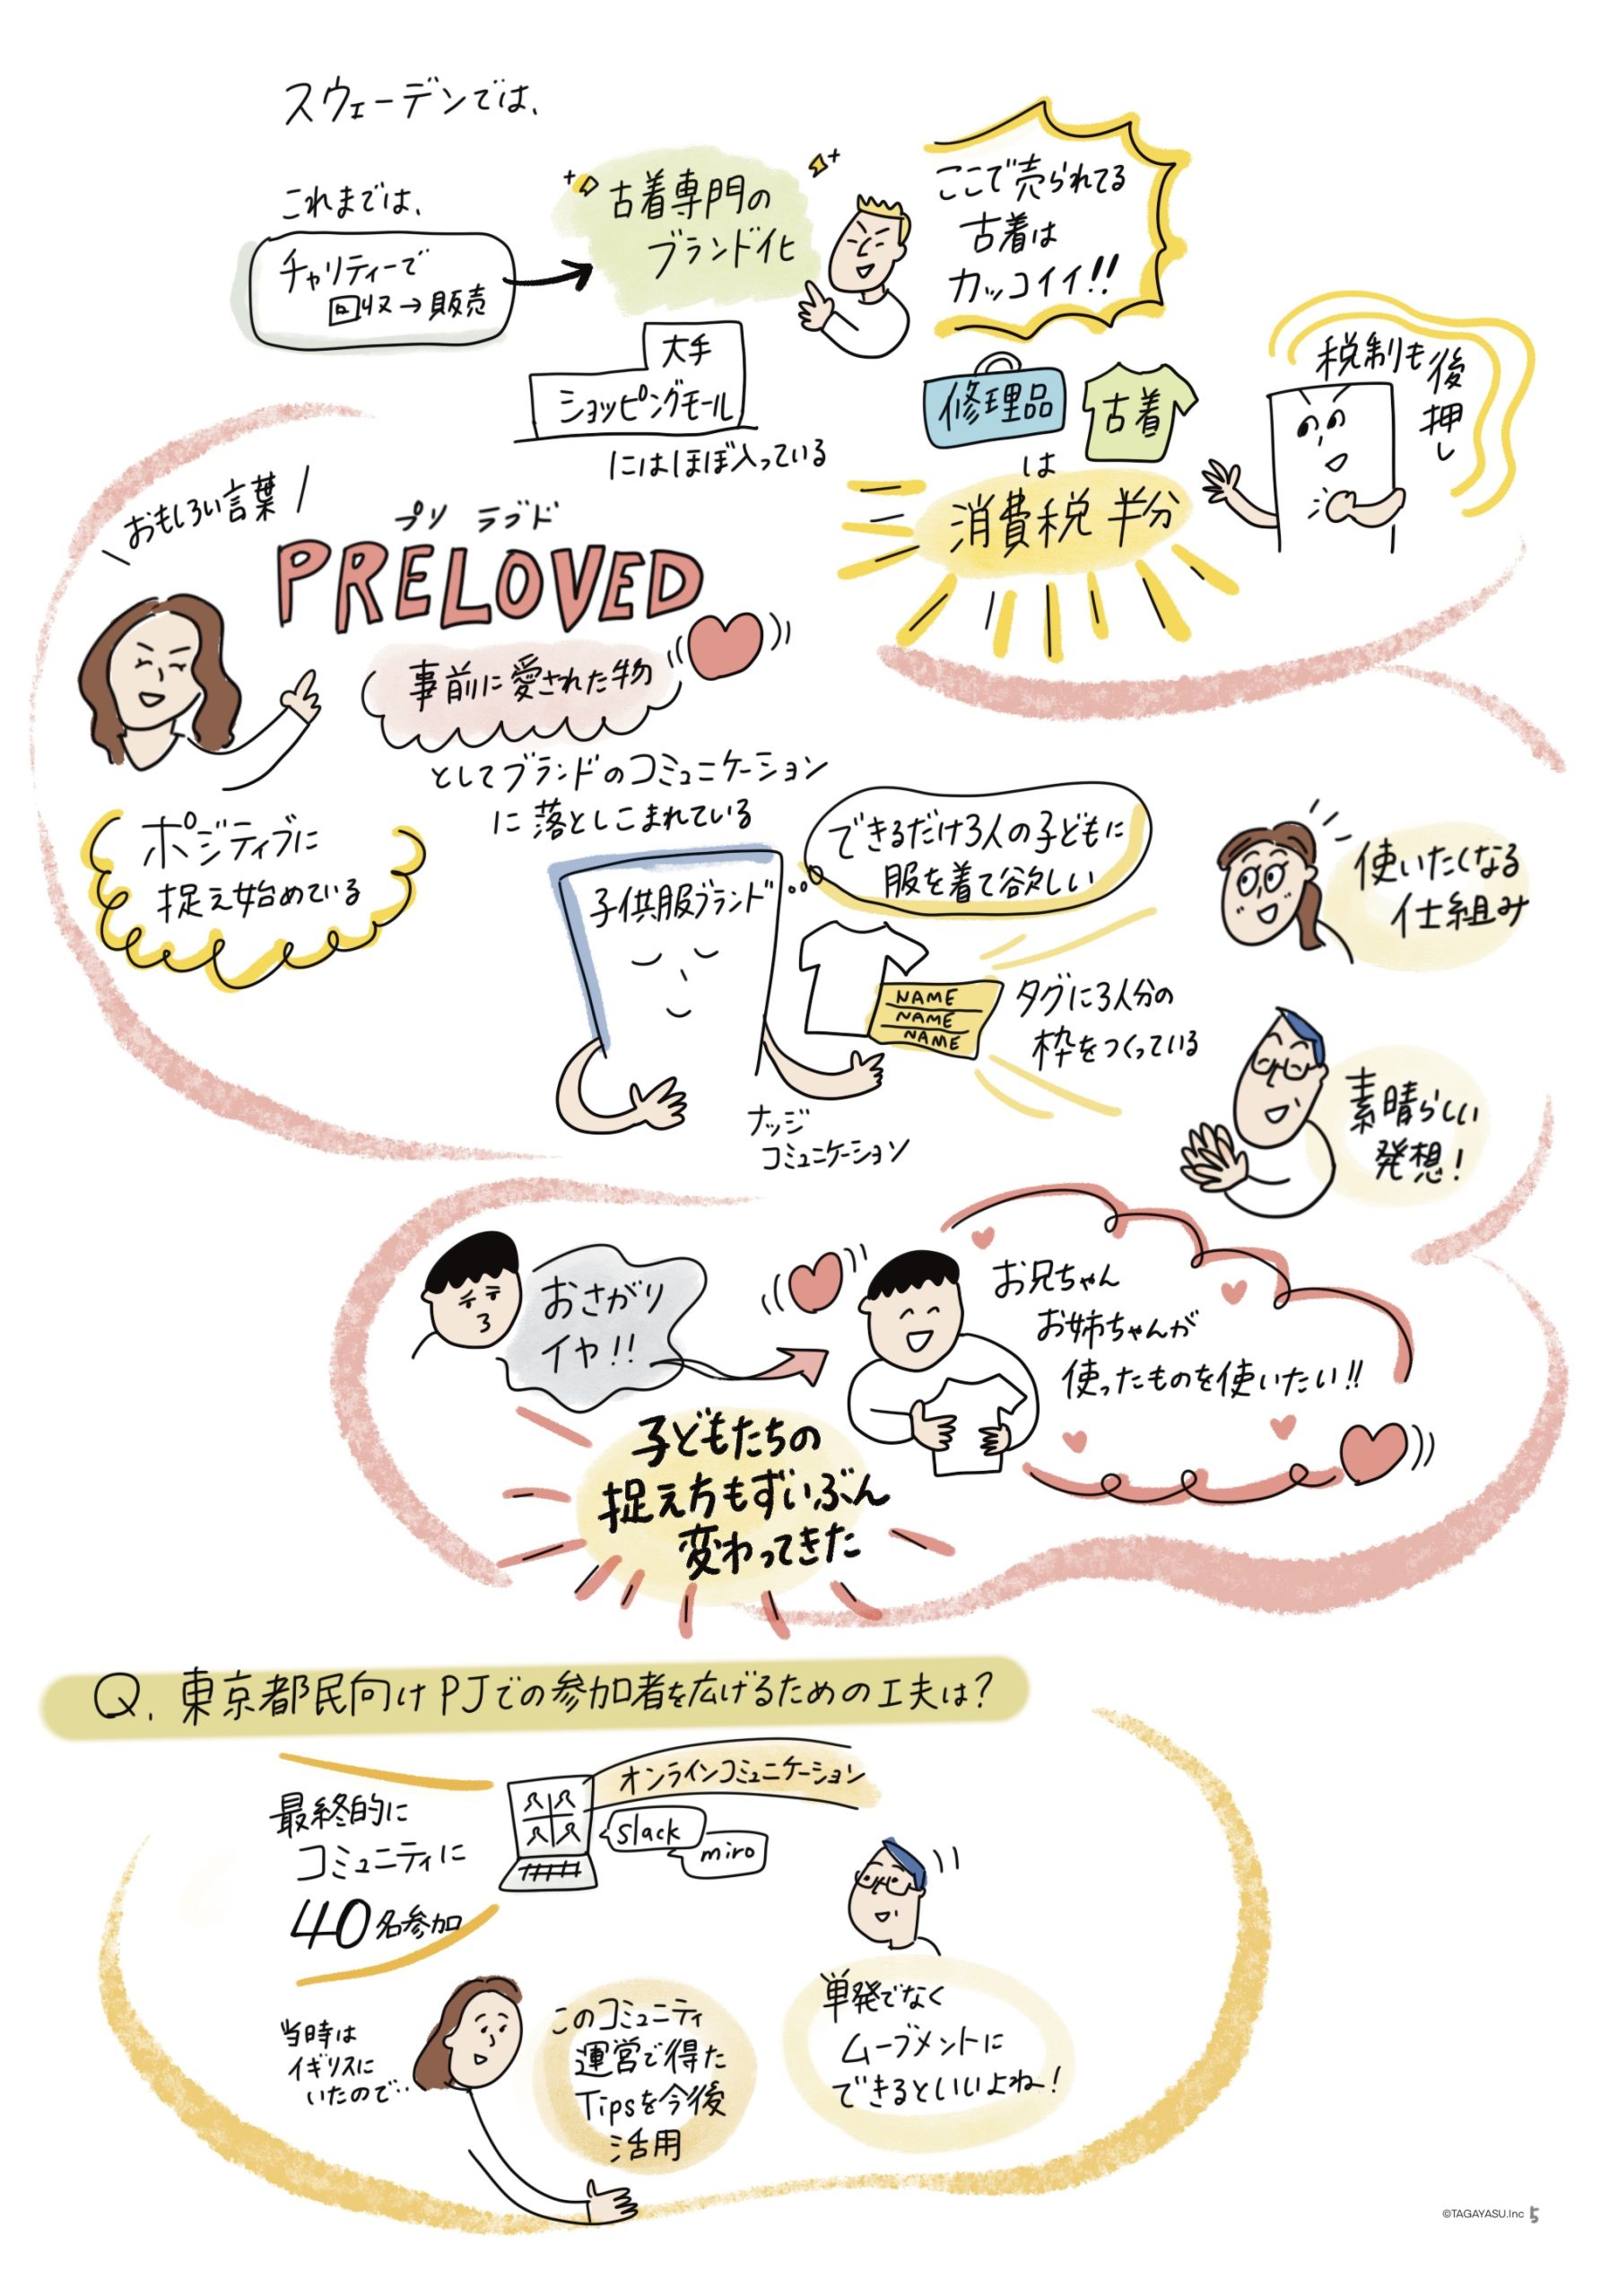 スウェーデンでは、
これまでは、
チャリティーで
回収→販売
古着専門の
ブランド化
ここで売られてる
古着は
カッコイイ!!
大手
ショッピングモール
にはほぼ入っている
修理品
古着
は
消費税 半分
税制も後押し
おもしろい言葉
プリ ラブド
PRELOVED
事前に愛された物
としてブランドのコミュニケーション
に落としこまれている
ポジティブに
捉え始めている
子供服ブランド
できるだけ3人の子どもに
服を着て欲しい
NAME
NAME
NAME
タグに3人分の
枠をつくっている
ナッジ
コミュニケーション
使いたくなる
仕組み
素晴らしい
発想!
おさがり
イヤ!!
お兄ちゃん
お姉ちゃんが
使ったものを使いたい!!
子どもたちの
捉え方もずいぶん
変わってきた
Q. 東京都民向けPJでの参加者を広げるための工夫は?
最終的に
コミュニティに
40名参加
オンラインコミュニケーション
slack
miro
当時は
イギリスに
いたので‥
このコミュニティ
運営で得た
Tipsを今後
活用
単発でなく
ムーブメントに
できるといいよね!
©TAGAYASU.Inc